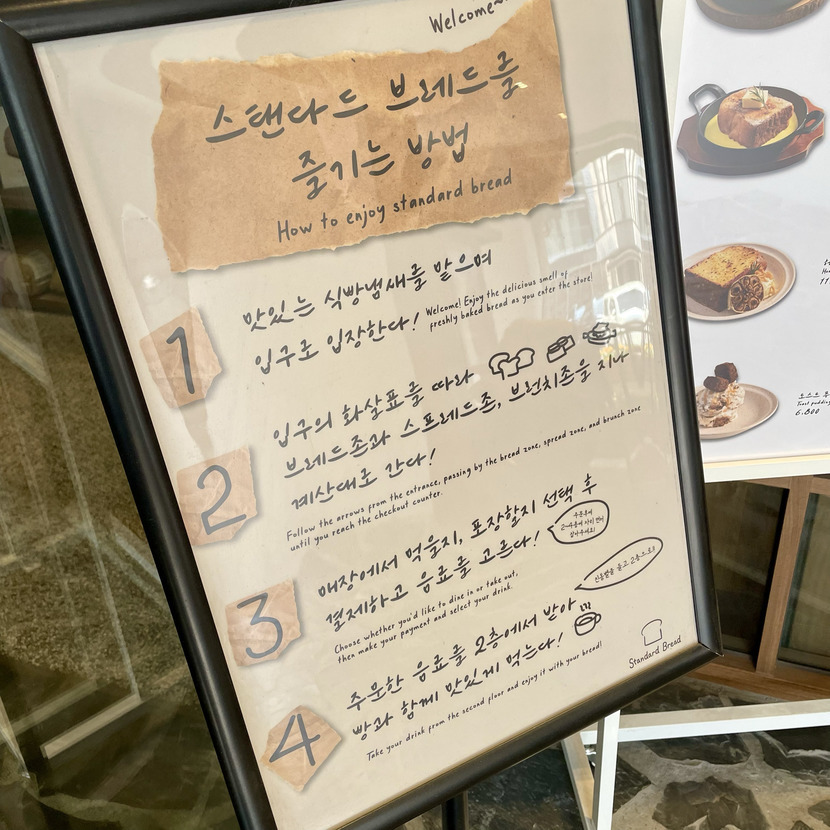 Welcome~
스탠다드 브레드를
즐기는 방법
How to enjoy standard bread
1
맛있는 식빵냄새를 맡으며
입구로 입장한다!
Welcome! Enjoy the delicious smell of
freshly baked bread as you enter the store!
2
입구의 화살표를 따라
브레드존과 스프레드존, 브런치존을 지나
계산대로 간다!
Follow the arrows from the entrance, passing by the bread zone, spread zone, and brunch zone
until you reach the checkout counter.
3
매장에서 먹을지, 포장할지 선택 후
결제하고 음료를 고른다!
주문후에
Choose whether you'd like to dine in or take out,
then make your payment and select your drink.
4
주문한 음료를 2층에서 받아
빵과 함께 맛있게 먹는다!
진동벨을 들고 2층으로!
Take your drink from the second floor and enjoy it with your bread!
Standard Bread
6.800